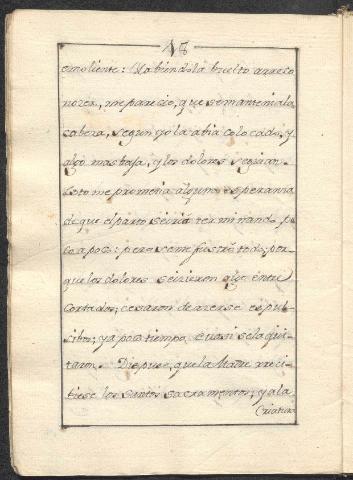 18
emoliente: Habiendola buelto a reco
nozer, me parecio, que se mantenia la
cabeza, segun yo la abia colocado, y
algo mas baja, y los dolores seguian.
Esto me prometia alguna esperanza
de que el parto se iria terminando po
co a poco: pero se me frustró todo, por
que los dolores se icieron algo entre
Cortados; cesaron de azerse espul-
sibos; ya poco tiempo, cuasi se la qui-
taron. Dispuse, que la Madre reci-
tiese los santos sacramentos, y a la
Criatura